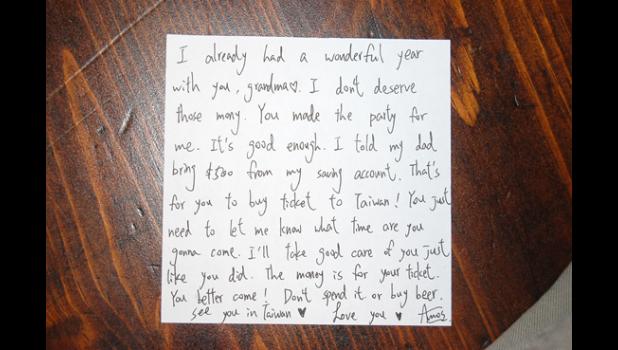 I already had a wonderful year
with you, grandma♡. I don't deserve
those mony. You made the party for
me. It's good enough. I told my dad
bring $500 from my saving account. That's
for you to buy ticket to Taiwan! You just
need to let me know what time are you
gonna come. I'll take good care of you just
like you did. The money is for your ticket.
You better come! Don't spend it or buy beer.
see you in Taiwan ♥ Love you ♥ Amos.